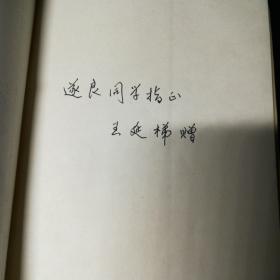 遂良同学指正
王延梯赠